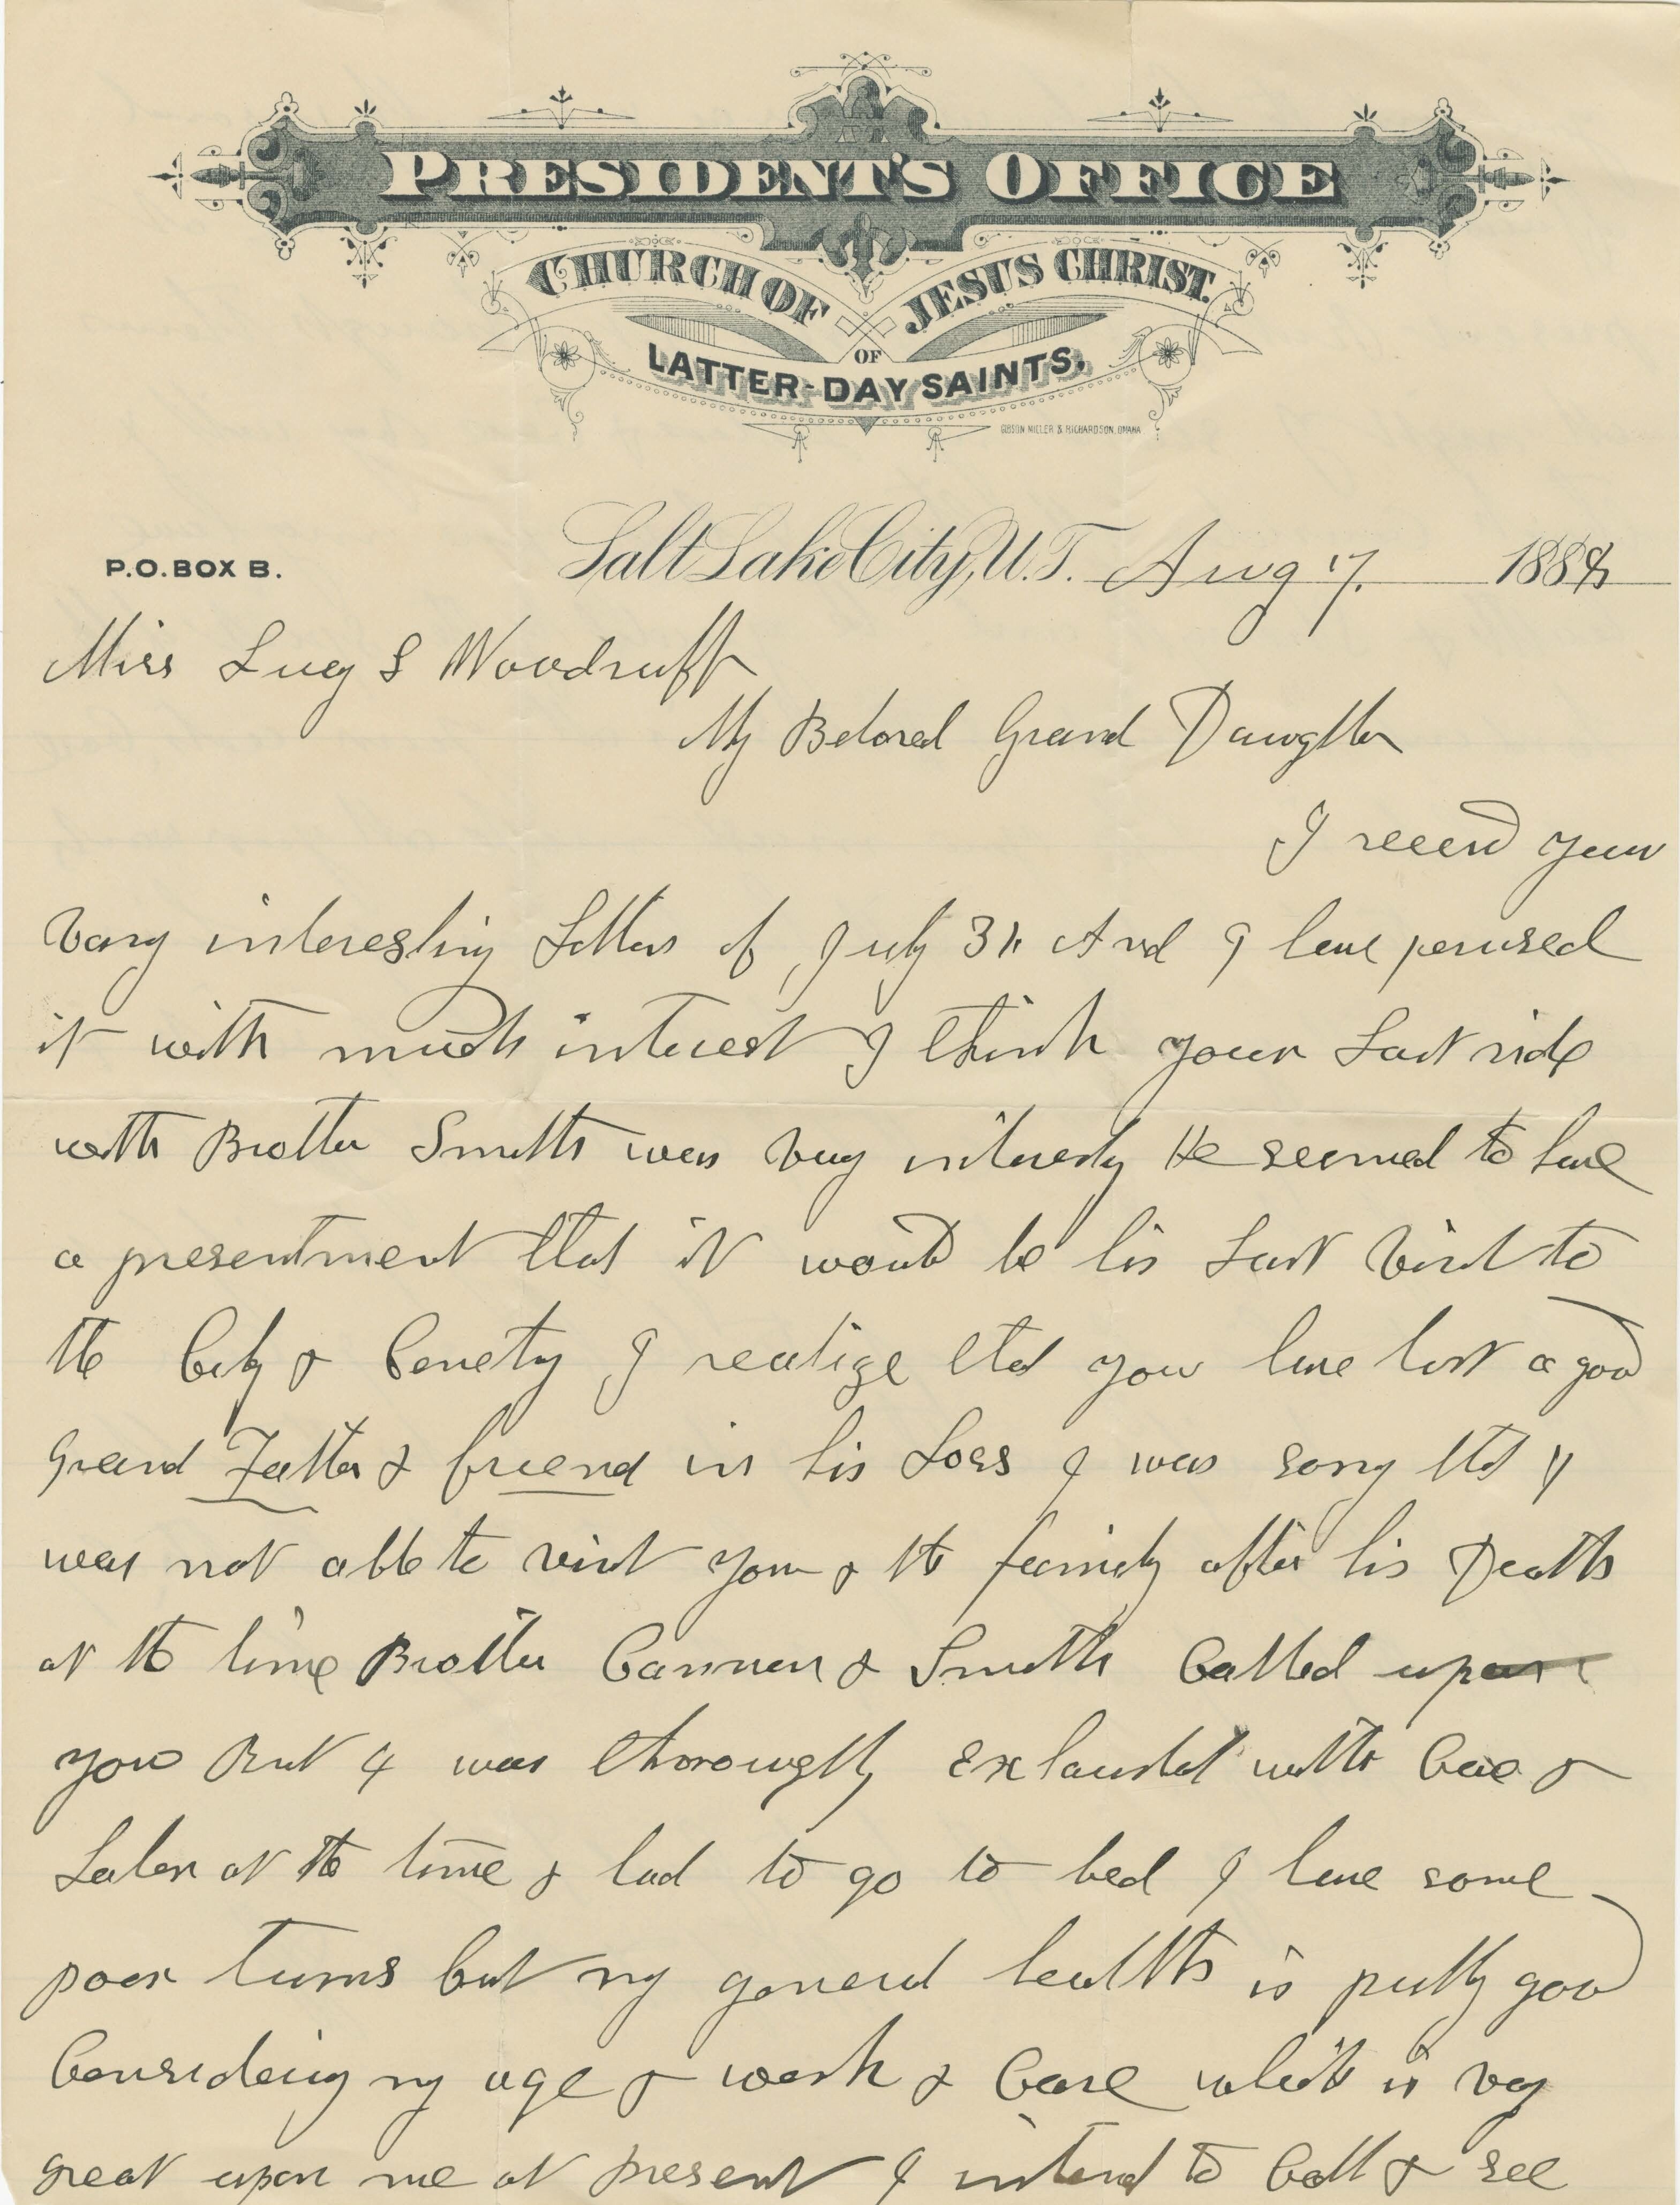 PRESIDENT'S OFFICE
CHURCH OF JESUS CHRIST
OF
LATTER-DAY SAINTS.
GIBSON MILLER & RICHARDSON, OMAHA
P.O. BOX B.
Salt Lake City, U.T. Aug 7. 1888
Miss Lucy S Woodruff
My Beloved Grand Daughter
I receivd your
vary interesting Letters of July 31. And I have perused
it with much interest I think your Last ride
with Brother Smith was vary interesty He seemed to have
a presentment that it would be his Last visit to
the City & County I realize that you have lost a good
Grand Father & friend in his Loss I was sorry that I
was not able to visit you & the family after his Death
at the time Brother Cannon & Smith Called upon
you But I was thoroughly Exhausted with Care &
Labor at the time & had to go to bed I have some
poor turns but my general health is pretty good
Considering my age & work & Care which is vary
great upon me at present I intend to Call & see